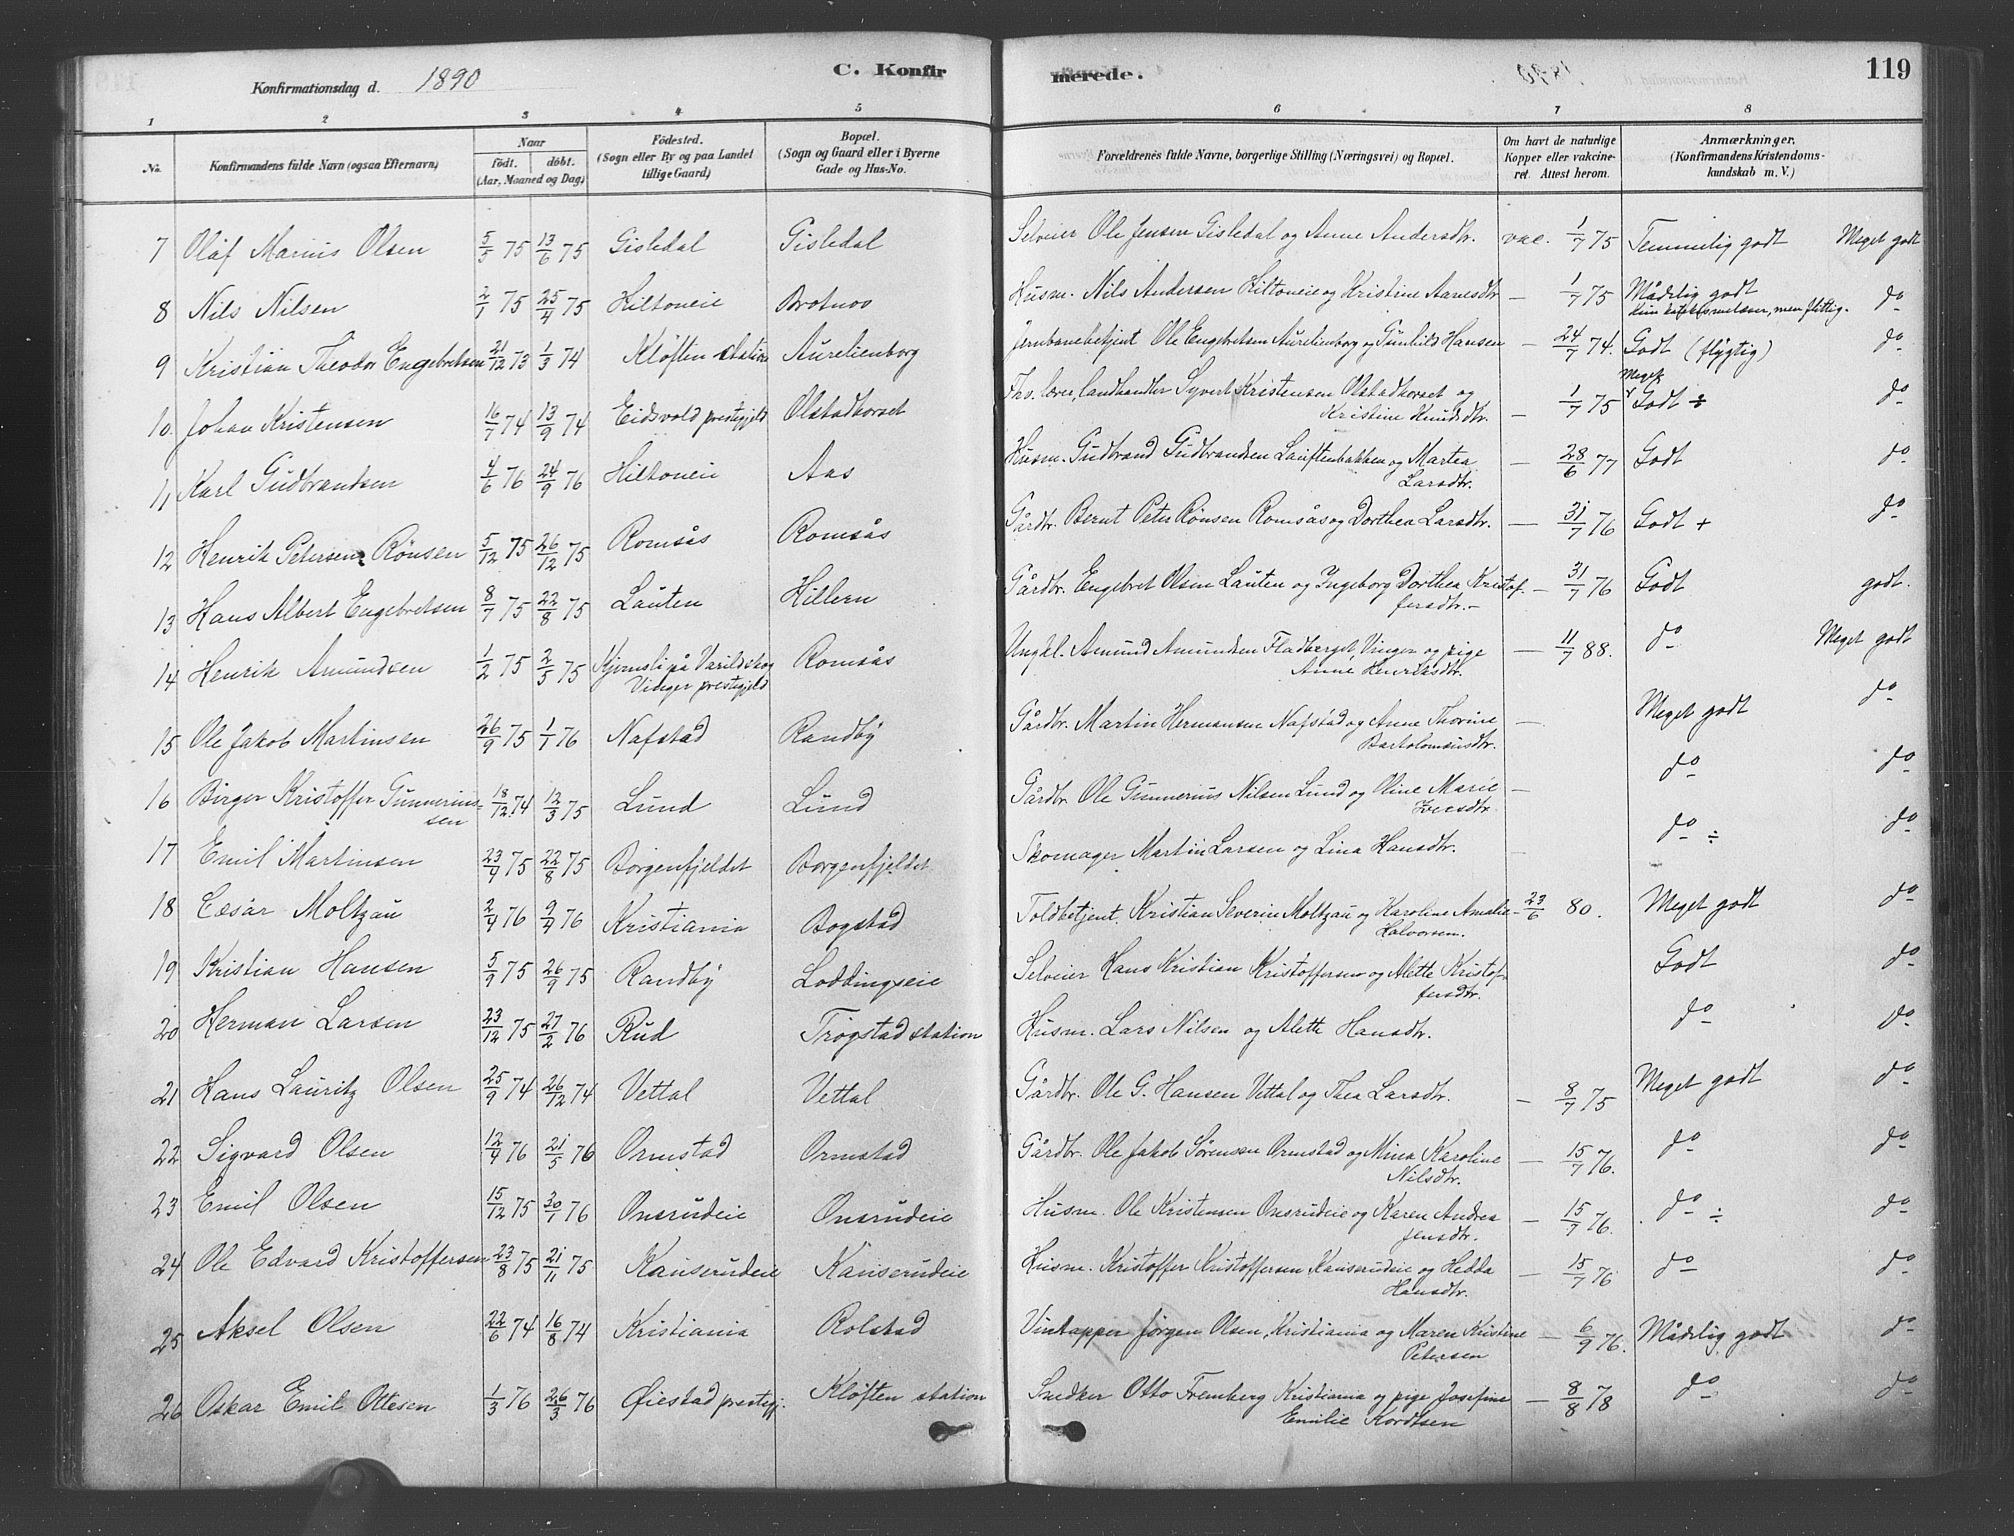 Konfirmationsdag d. 1890 C. Konfirmerede. 119
1 2 3 4 5 6 7 8
No. Konfirmandens fulde Navn (ogsaa Efternavn) Naar födt. döbt. (Aar, Maaned og Dag) Födested. (Sogn eller By og paa Landet tillige Gaard) Bopæl. (Sogn og Gaard eller i Byerne Gade og Hus-No. Forældrenes fulde Navne, borgerlige Stilling (Næringsvei) og Bopæl. Om havt de naturlige Kopper eller vakcineret. Attest herom. Anmærkninger. (Konfirmandens Kristendomskundskab m. V.)
7 Olaf Marius Olsen 5/5 75 13/6 75 Gisledal Gisledal Selveier Ole Jensen Gisledal og Anne Andersdtr. vac. 1/7 75 Temmelig godt Meget godt
8 Nils Nilsen 2/1 75 25/4 75 Hiltoneie Brotnoo Husm. Nils Andersen Hiltoneie og Kristine Aanesdtr — 1/7 75 Mådelig godt do
men flittig.
9 Kristian Theodor Engebretsen 21/12 73 1/3 74 Kløften station Aurelienborg Jernbanebetjent Ole Engebretsen Aurelienborg og Gunhild Hansen — 24/7 74. Godt (flygtig) do
10. Johan Kristensen 16/7 74 13/9 74 Eidsvold prestegjeld Olstadkorset Fhs. lærer, landhandler Syvert Kristensen Olstadkorset og Kristine Knudsdtr. — 1/7 75 Meget Godt ÷ do
11 Karl Gudbrandsen 4/6 76 24/9 76 Hiltoneie Aas Husm. Gudbrand Gudbrandsen Lauftenbakken og Martea Larsdtr. — 28/6 77 Godt do
12 Henrik Petersen Rönsen 5/12 75 26/12 75 Romsås Romsås Gårdbr. Bernt Peter Rönsen Romsås og Dorthea Larsdtr. — 31/7 76 Godt + do
13 Hans Albert Engebretsen 8/7 75 22/8 75 Lauten Hillern Gårdbr. Engebret Olsen Lauten og Ingeborg Dorthea Kristofersdtr. — 31/7 76 Godt godt.
14 Henrik Amundsen 1/2 75 2/5 75 Kjernsli på Varildskog Vinger prestegjeld Romsås Ungkl. Amund Amundsen Fladberget, Vinger og pige Anne Henriksdtr. — 11/7 88. do Meget godt
15 Ole Jakob Martinsen 26/9 75 1/1 76 Nafstad Randby Gårdbr. Martin Hermansen Nafstad og Anne Thorine Bartolomæusdtr. — Meget godt do
16 Birger Kristoffer Gunneriussen 18/12 74 12/3 75 Lund Lund Gårdbr. Ole Gunnerius Nilsen Lund og Oline Marie Iversdtr — do do
17 Emil Martinsen 23/4 75 22/8 75 Borgenfjeldet Borgenfjeldet Skomager Martin Larsen og Lina Hansdtr. — do ÷ do
18 Cæsar Moltzau 2/4 76 9/4 76 Kristiania Bogstad Toldbetjent Kristian Severin Moltzau og Karoline Amalie Halvorsen. — 23/6 80. Meget godt do
19 Kristian Hansen 5/9 75 26/9 75 Randby Loddingseie Selveier Hans Kristian Kristoffersen og Alette Kristofersdtr. Godt do
20 Herman Larsen 23/12 75 27/2 76 Rud Trogstad station Husm. Lars Nilsen og Alette Hansdtr. do do
21 Hans Lauritz Olsen 25/9 74 26/12 74 Vettal Vettal Gårdbr. Ole G. Hansen Vettal og Thea Larsdtr. — 8/7 75 Meget godt do
22 Sigvard Olsen 12/4 76 21/5 76 Ormstad Ormstad Gårdbr. Ole Jakob Sørensen Ormstad og Mina Karoline Nilsdtr. — 15/7 76. do do
23 Emil Olsen 15/12 75 30/1 76 Onsrudeie Onsrudeie Husm. Ole Kristensen Onsrudeie og Karen Andrea Jensdtr. — 15/7 76. do ÷ do
24 Ole Edvard Kristoffersen 23/8 75 21/11 75 Kanserudeie Kanserudeie Husm. Kristoffer Kristoffersen Kanserudeie og Hedda Hansdtr. — 15/7 76 do do
25 Aksel Olsen 22/6 74 16/8 74 Kristiania Rolstad Vintapper Jørgen Olsen, Kristiania og Maren Kristine Petersen — 6/9 76. Mådelig godt do
26 Oskar Emil Ottesen 1/3 76 26/3 76 Øiestad prestegj. Kløften station Snedker Otto Fremberg Kristiania og pige Josefine Emilie Kordtsen — 8/8 78 do do